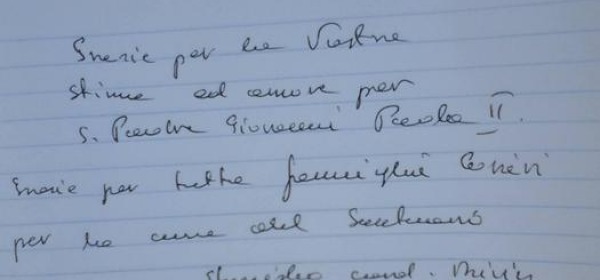 Grazie per la Vostra
stima ed amore per
S. Padre Giovanni Paolo II.
Grazie per tutta famiglia
per la cura del Santuario
Stanisław card.